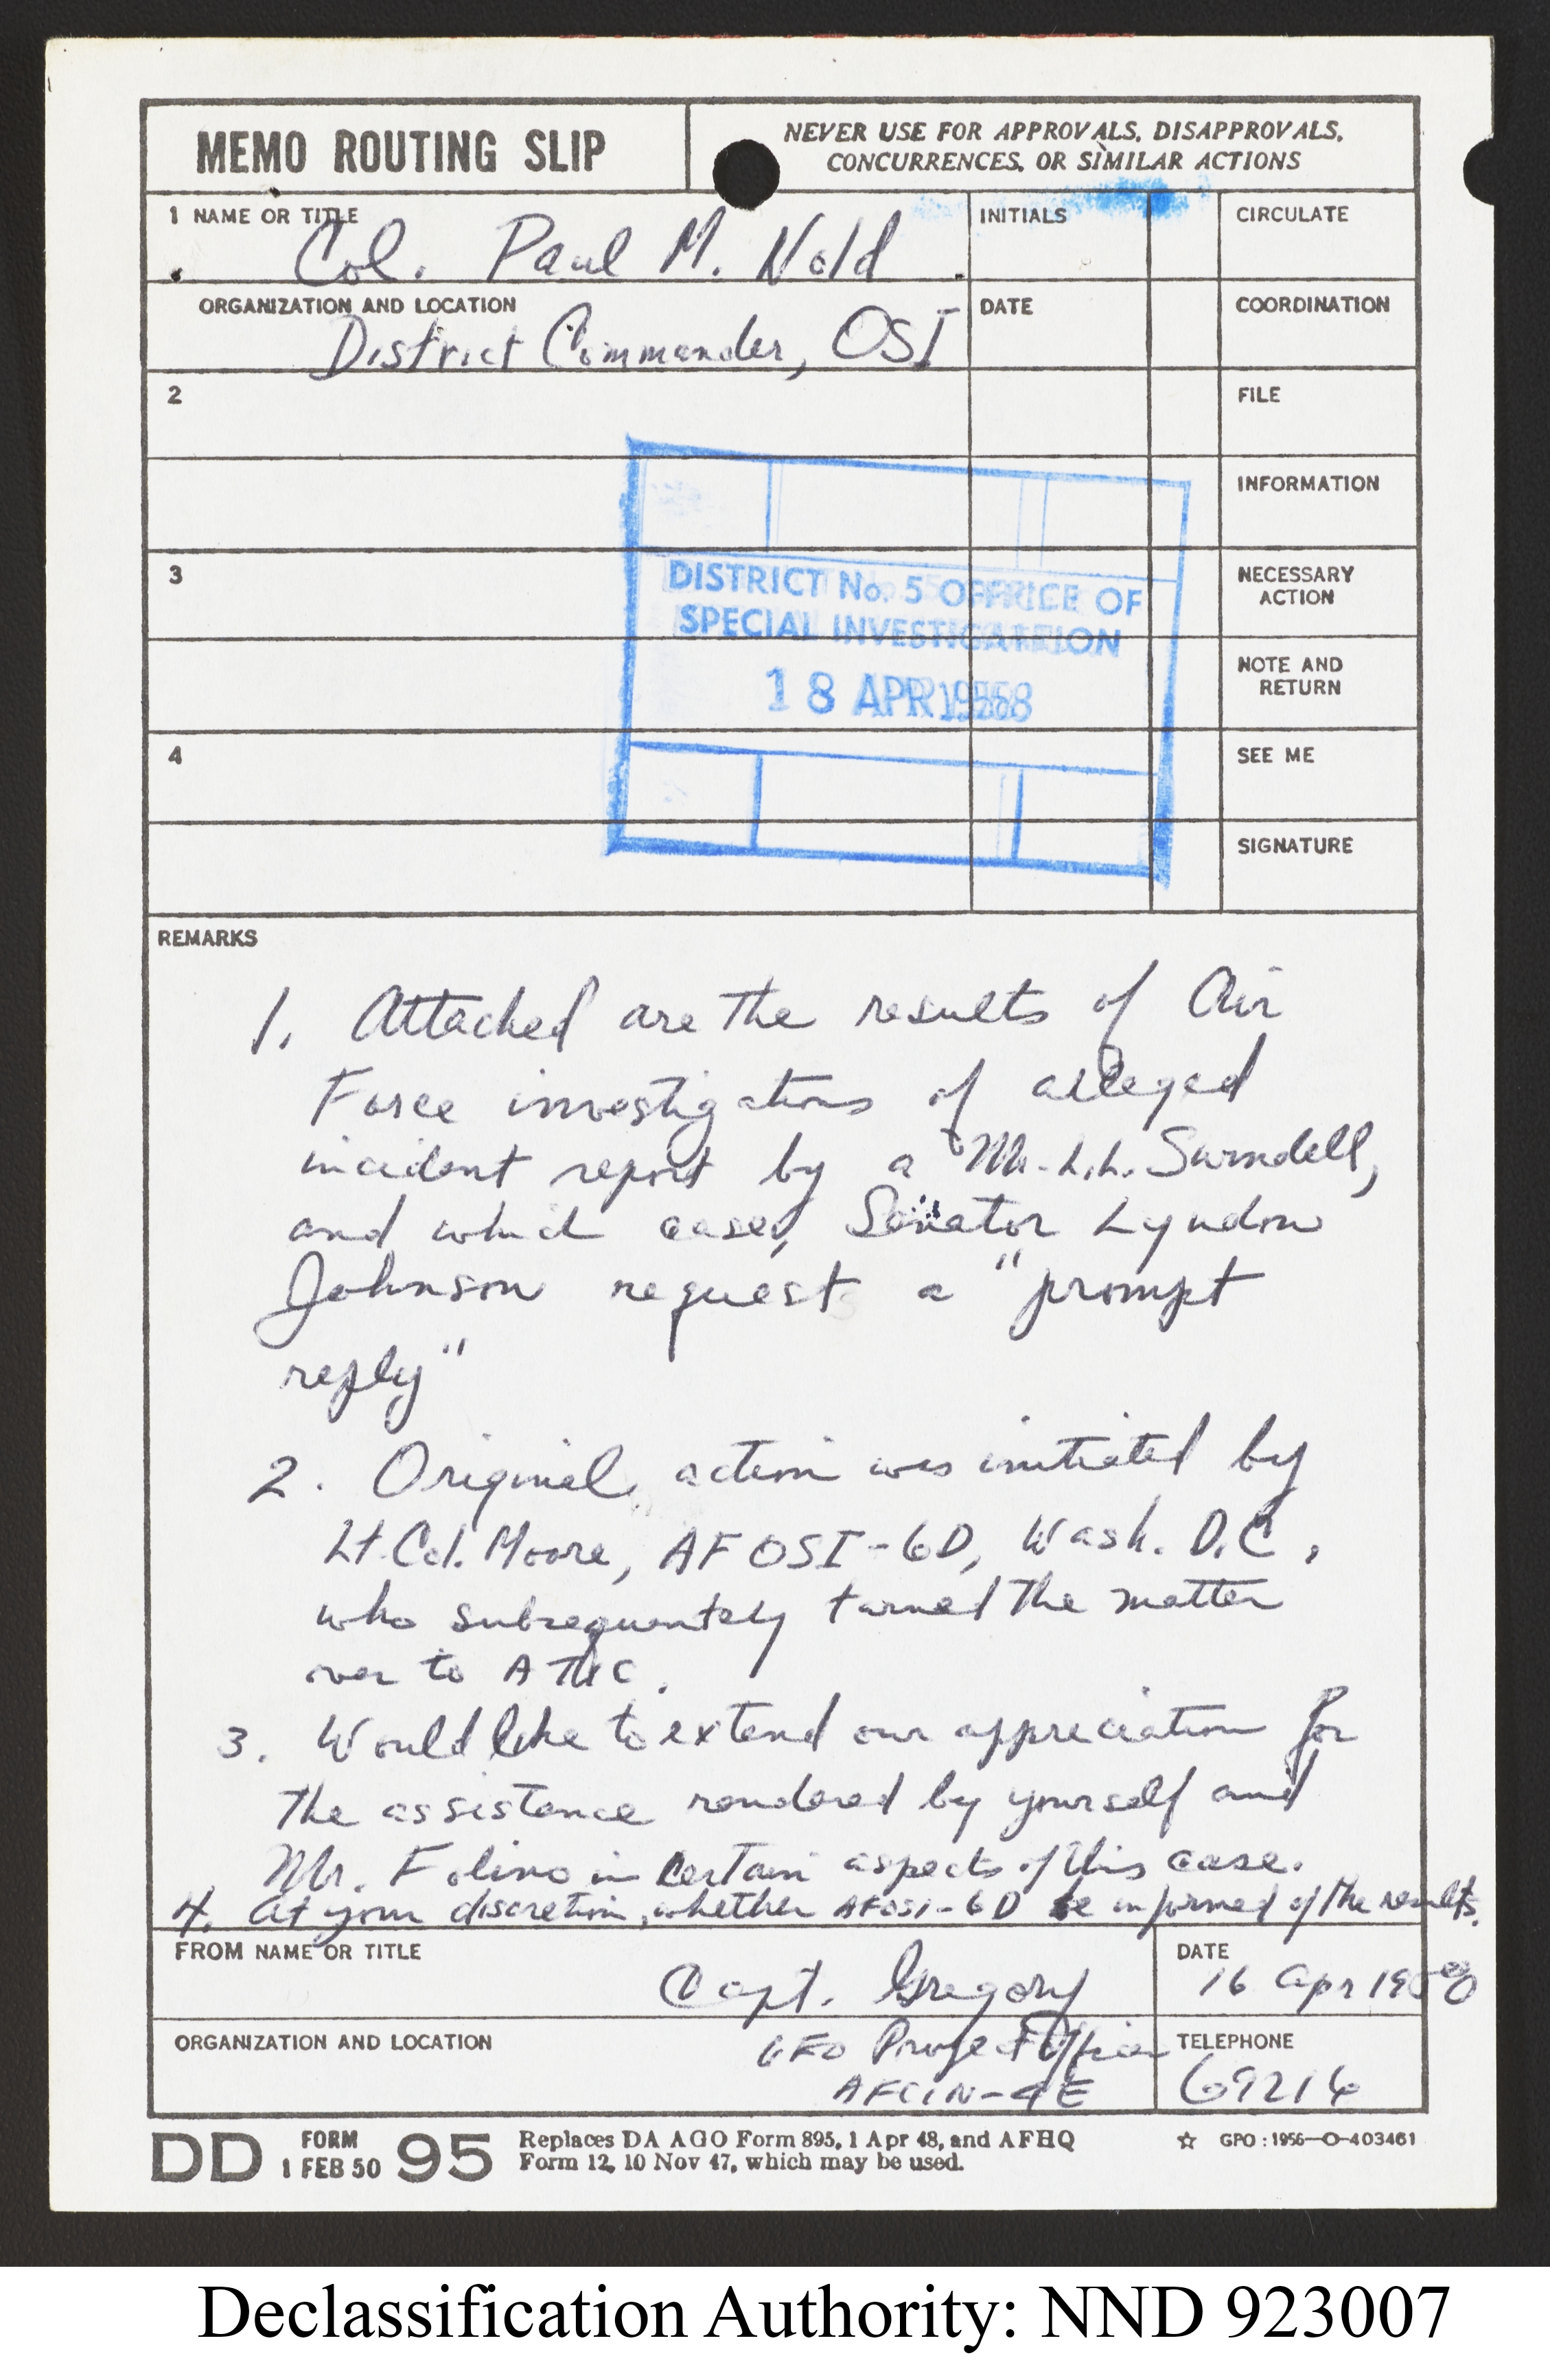 MEMO ROUTING SLIP
NEVER USE FOR APPROVALS, DISAPPROVALS,
CONCURRENCES, OR SIMILAR ACTIONS
1 NAME OR TITLE
Col. Paul M. Nold
INITIALS
CIRCULATE
ORGANIZATION AND LOCATION
District Commander, OSI
DATE
COORDINATION
2
FILE
INFORMATION
3
NECESSARY
ACTION
DISTRICT No. 5 OFFICE OF
SPECIAL INVESTIGATION
18 APR 1958
NOTE AND
RETURN
4
SEE ME
SIGNATURE
REMARKS
1. Attached are the results of Air
Force investigations of alleged
incident report by a Mr. L.L.
and which case, Senator Lyndon
Johnson request a "prompt
reply"
2. Original action was initiated by
Lt. Col. Moore, AFOSI-6D, Wash. D.C.,
who subsequently turned the matter
over to ATIC.
3. Would like to extend our appreciation for
the assistance rendered by yourself and
Mr. Folino in certain aspects of this case.
4. At your discretion, whether AFOSI-6D be informed of the results.
FROM NAME OR TITLE
Capt. Gregory
DATE
16 Apr
ORGANIZATION AND LOCATION
UFO Project Officer
AFCIN-4E
TELEPHONE
69216
DD FORM 1 FEB 50 95
Replaces DA AGO Form 895, 1 Apr 48, and AFHQ
Form 12, 10 Nov 47, which may be used.
☆ GPO : 1956—O-403461
Declassification Authority: NND 923007